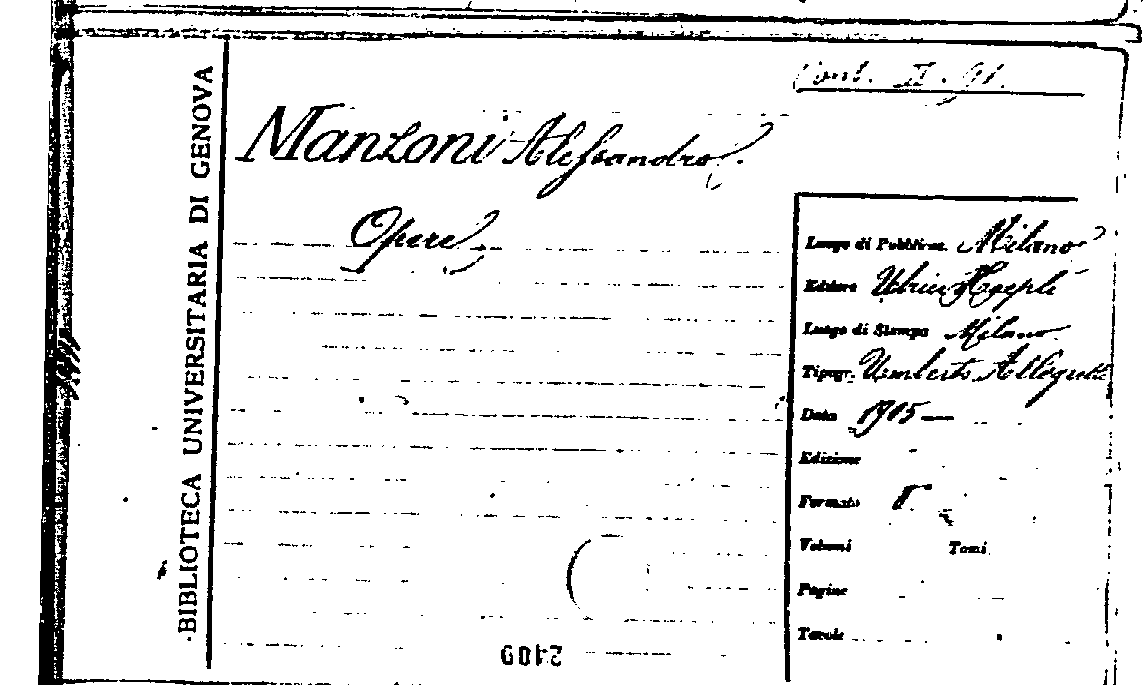 Cont. II. 91.
BIBLIOTECA UNIVERSITARIA DI GENOVA
Manzoni Alessandro.
Opere
Luogo di Pubblicaz. Milano
Editore Ulrico Hoepli
Luogo di Stampa Milano
Tipogr. Umberto Allegretti
Data 1905 —
Edizione
Formato 8°
Volumi Tomi
Pagine
Tavole
2409